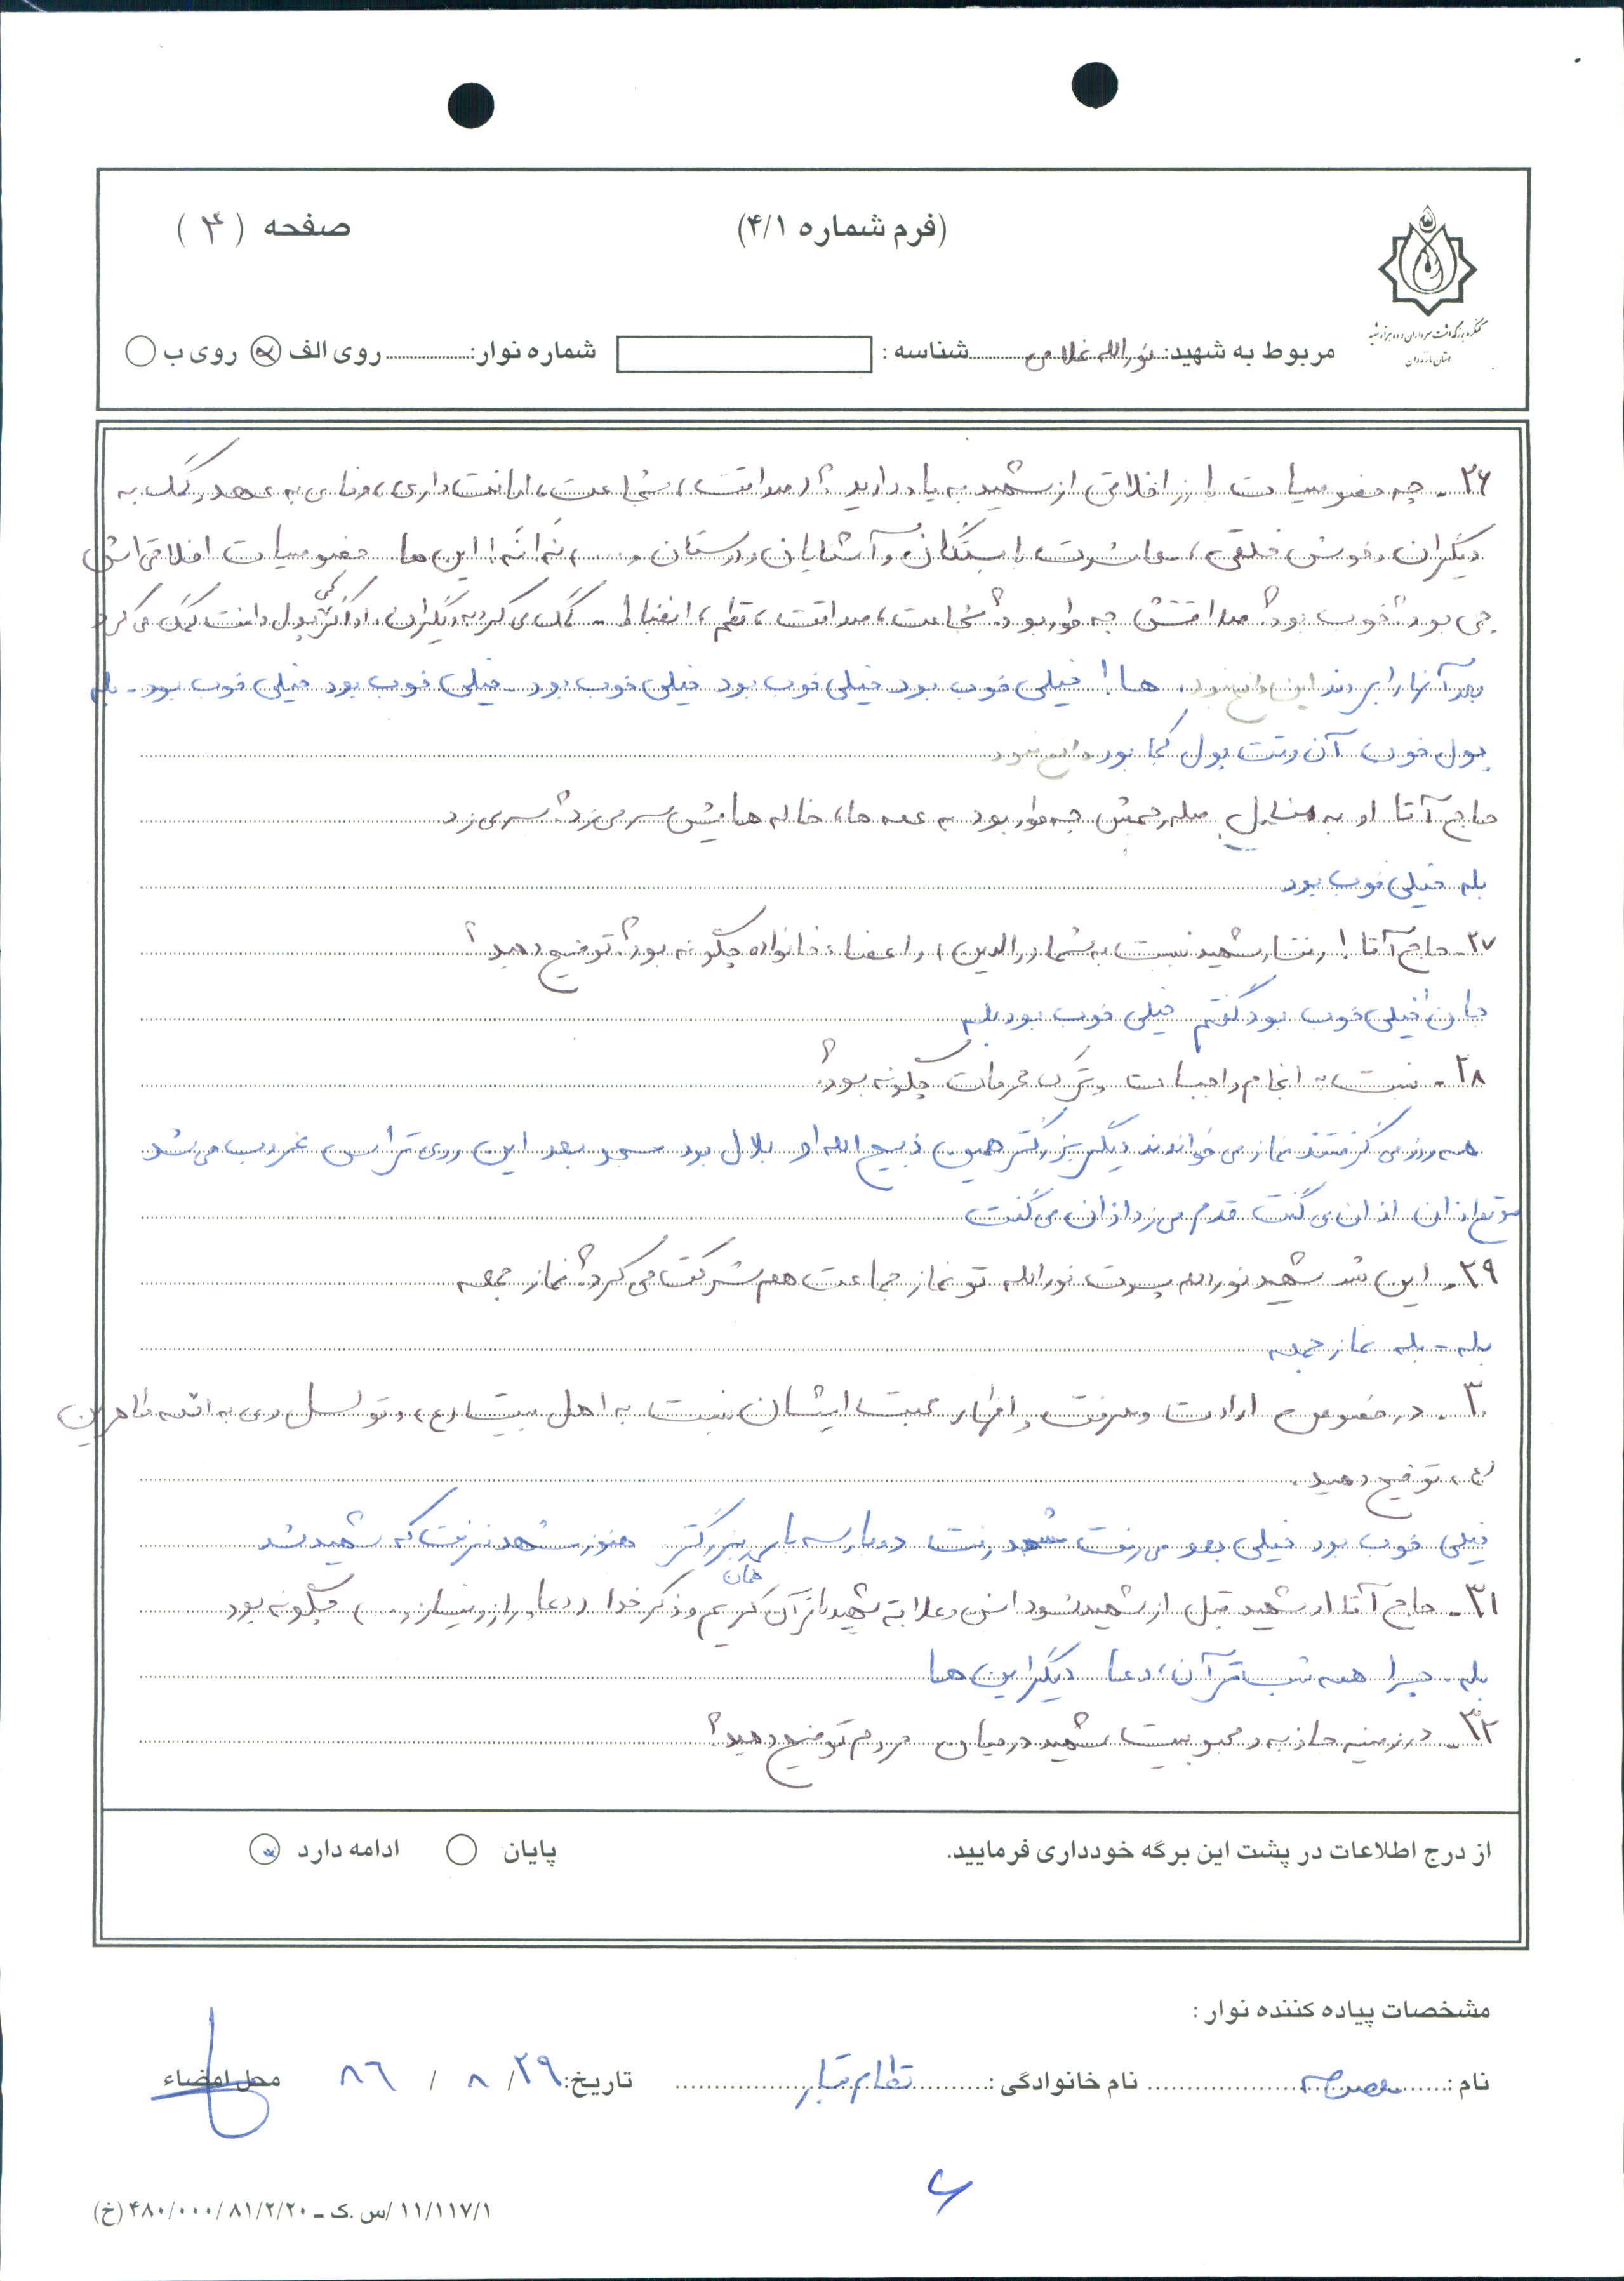 (فرم شماره ۴/۱)
صفحه (۴)
کنگره بزرگداشت سرداران و ده هزار شهید
استان مازندران
مربوط به شهید: نورالله غلامی شناسه: شماره نوار: روی الف روی ب
۲۶- چه خصوصیات بارز اخلاقی از شهید به یاد دارید؟ (صداقت، شجاعت، امانت داری، وفای به عهد، کمک به
دیگران، خوش خلقی، معاشرت با بستگان و آشنایان و دوستان و ....، این ها خصوصیات اخلاقی اش
چی بود؟ خوب بود؟ صداقتش چه طور بود؟ شجاعت، صداقت، نظم، انضباط - کمک می کرد به دیگران، اگر کسی پول داشت کمک می کرد
بعد آنها را بردند این واضح نبود. ها! خیلی خوب بود خیلی خوب بود خیلی خوب بود - خیلی خوب بود خیلی خوب بود - بله
پول خوب آن وقت پول کجا بود واضح نبود
حاج آقا او به فامیل صله رحمش چه طور بود به عمه ها، خاله هایش سر می زد؟ سر می زد
بله خیلی خوب بود
۲۷- حاج آقا! رفتار شهید نسبت به شما (والدین) و اعضاء خانواده چگونه بود؟ توضیح دهید؟
جان! خیلی خوب بود گفتم خیلی خوب بود بله
۲۸- نسبت به انجام واجبات و ترک محرمات چگونه بود؟
همه روزه می گرفتند نماز می خواندند دیگر بزرگتر همین ذبیح الله او بلال بود مسجد بعد این روی تراس غروب می شد
موقع اذان اذان می گفت قدم می زد اذان می گفت
۲۹- این شد شهید نورالله پسرت نورالله تو نماز جماعت هم شرکت می کرد؟ نماز جمعه
بله - بله نماز جمعه
۳۰- در خصوص ارادت و معرفت و اظهار محبت ایشان نسبت به اهل بیت (ع) و توسل وی به ائمه طاهرین
(ع) توضیح دهید.
خیلی خوب بود خیلی می رفت مشهد رفت دوبار سه بار همان بزرگتر هنوز مشهد نرفت که شهید شد
۳۱- حاج آقا او شهید قبل از شهید شود انس و علاقه شهید با قرآن کریم و ذکر خدا (دعا و راز و نیاز و ...) چگونه بود
بله. چرا همه شب قرآن، دعا دیگر این ها
۳۲- در زمینه جاذبه و محبوبیت شهید در میان مردم توضیح دهید؟
از درج اطلاعات در پشت این برگه خودداری فرمایید.
پایان ادامه دارد
مشخصات پیاده کننده نوار :
نام : معصومه نام خانوادگی : نظام تبار تاریخ: ۲۹/ ۸ / ۸۶ محل امضاء
۶
۱۱/۱۱۷/۱ /س.ک - ۴۸۰/۰۰۰/۸۱/۲/۲۰ (خ)